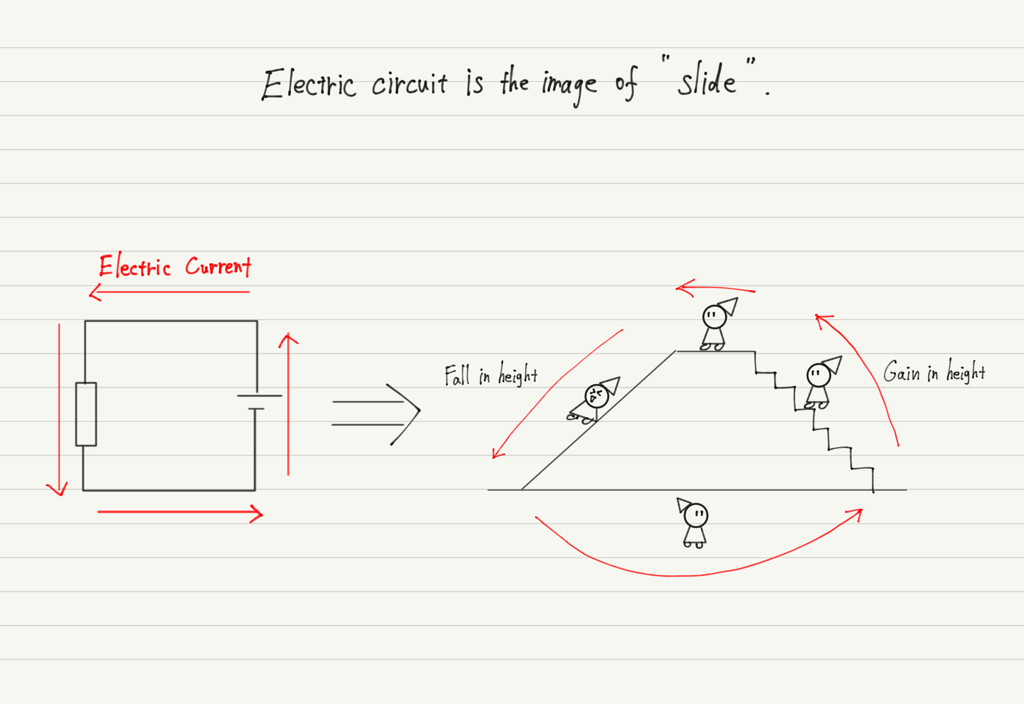 Electric circuit is the image of "slide".
Electric Current
Fall in height
Gain in height